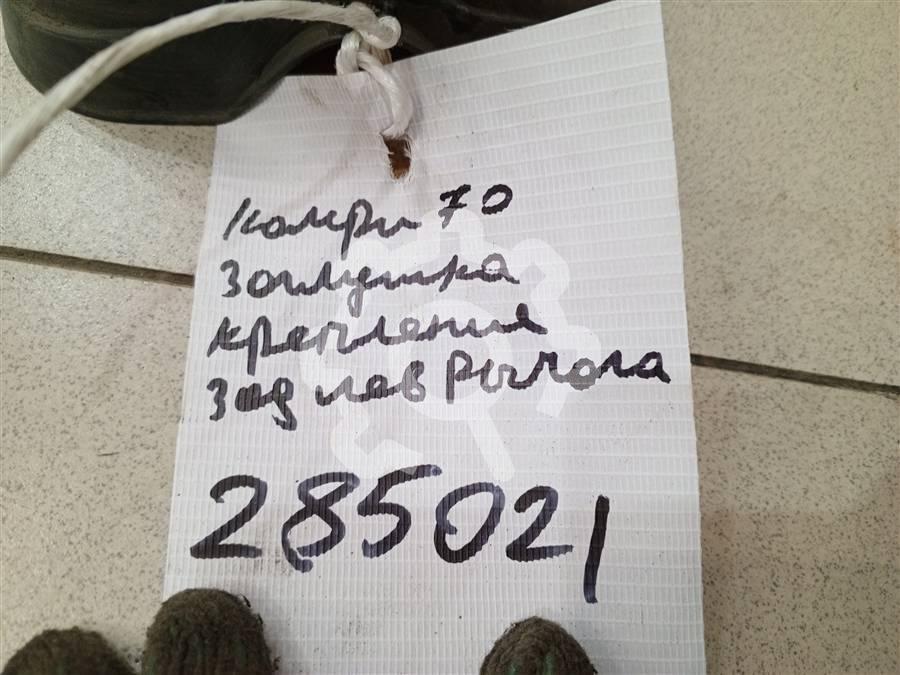 Камри 70
Заглушка
крепления
зад лев Рычага
285021